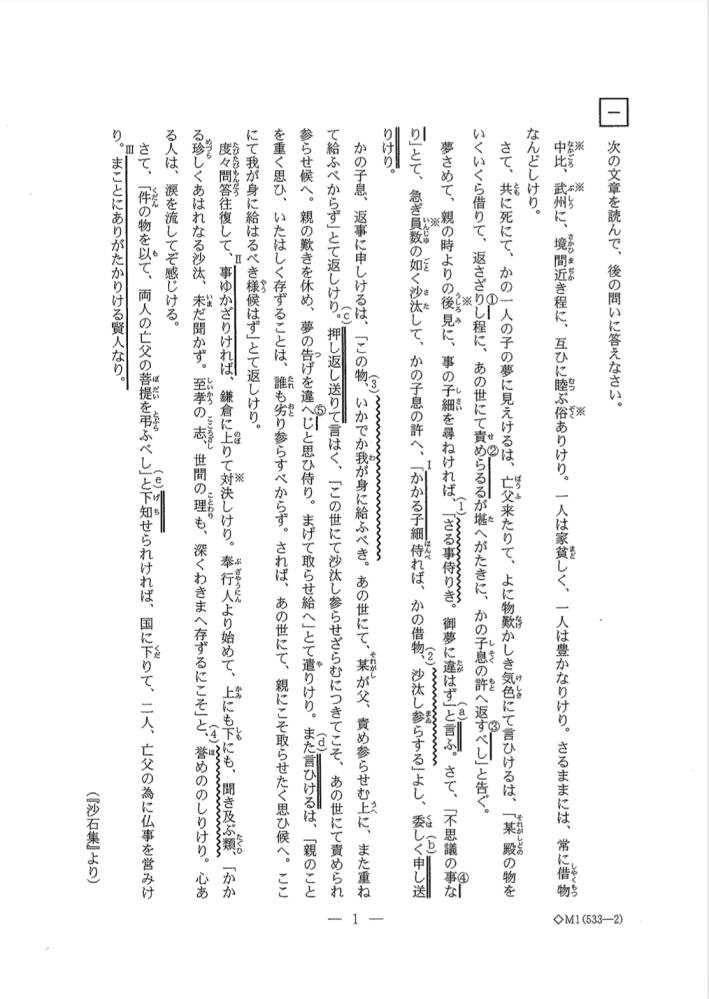 一
次の文章を読んで、後の問いに答えなさい。
※中比、※武州に、境間近き程に、互ひに睦ぶ※俗ありけり。一人は家貧しく、一人は豊かなりけり。さるままには、常に借物
なんどしけり。
さて、共に死にて、かの一人の子の夢に見えけるは、亡父来たりて、よに物歎かしき気色にて言ひけるは、「某殿の物を
いくいくら借りて、返さざり①し程に、あの世にて責め②らるるが堪へがたきに、かの子息の許へ返す③べし」と告ぐ。
夢さめて、親の時よりの※後見に、事の子細を尋ねければ、(1)「さる事侍りき。御夢に違はず」と(a)言ふ。さて、「不思議の事④な
り」とて、急ぎ※員数の如く沙汰して、かの子息の許へ、「Ⅰかかる子細侍れば、かの借物、(2)沙汰し参らする」よし、委しく(b)申し送
りけり。
かの子息、返事に申しけるは、「この物、(3)いかでか我が身に給ふべき。あの世にて、某が父、責め参らせむ上に、また重ね
て給ふべからず」とて返しけり。(c)押し返し送りて言はく、「この世にて沙汰し参らせざらむにつきてこそ、あの世にて責められ
参らせ候へ。親の歎きを休め、夢の告げを違へ⑤じと思ひ侍り。まげて取らせ給へ」とて遣りけり。(d)また言ひけるは、「親のこと
を重く思ひ、いたはしく存ずることは、誰も劣り参らすべからず。されば、あの世にて、親にこそ取らせたく思ひ候へ。ここ
にて我が身に給はるべき様候はず」とて返しけり。
度々問答往復して、Ⅱ事ゆかざりければ、鎌倉に上りて※対決しけり。奉行人より始めて、上にも下にも、(4)聞き及ぶ類、「かか
る珍しくあはれなる沙汰、未だ聞かず。至孝の志、世間の理も、深くわきまへ存ずるにこそ」と、誉めののしりけり。心あ
る人は、涙を流してぞ感じける。
さて、「件の物を以て、両人の亡父の菩提を弔ふべし」と(e)下知せられければ、国に下りて、二人、亡父の為に仏事を営みけ
り。Ⅲまことにありがたかりける賢人なり。
(『沙石集』より)
— 1 —
◇M1(533—2)